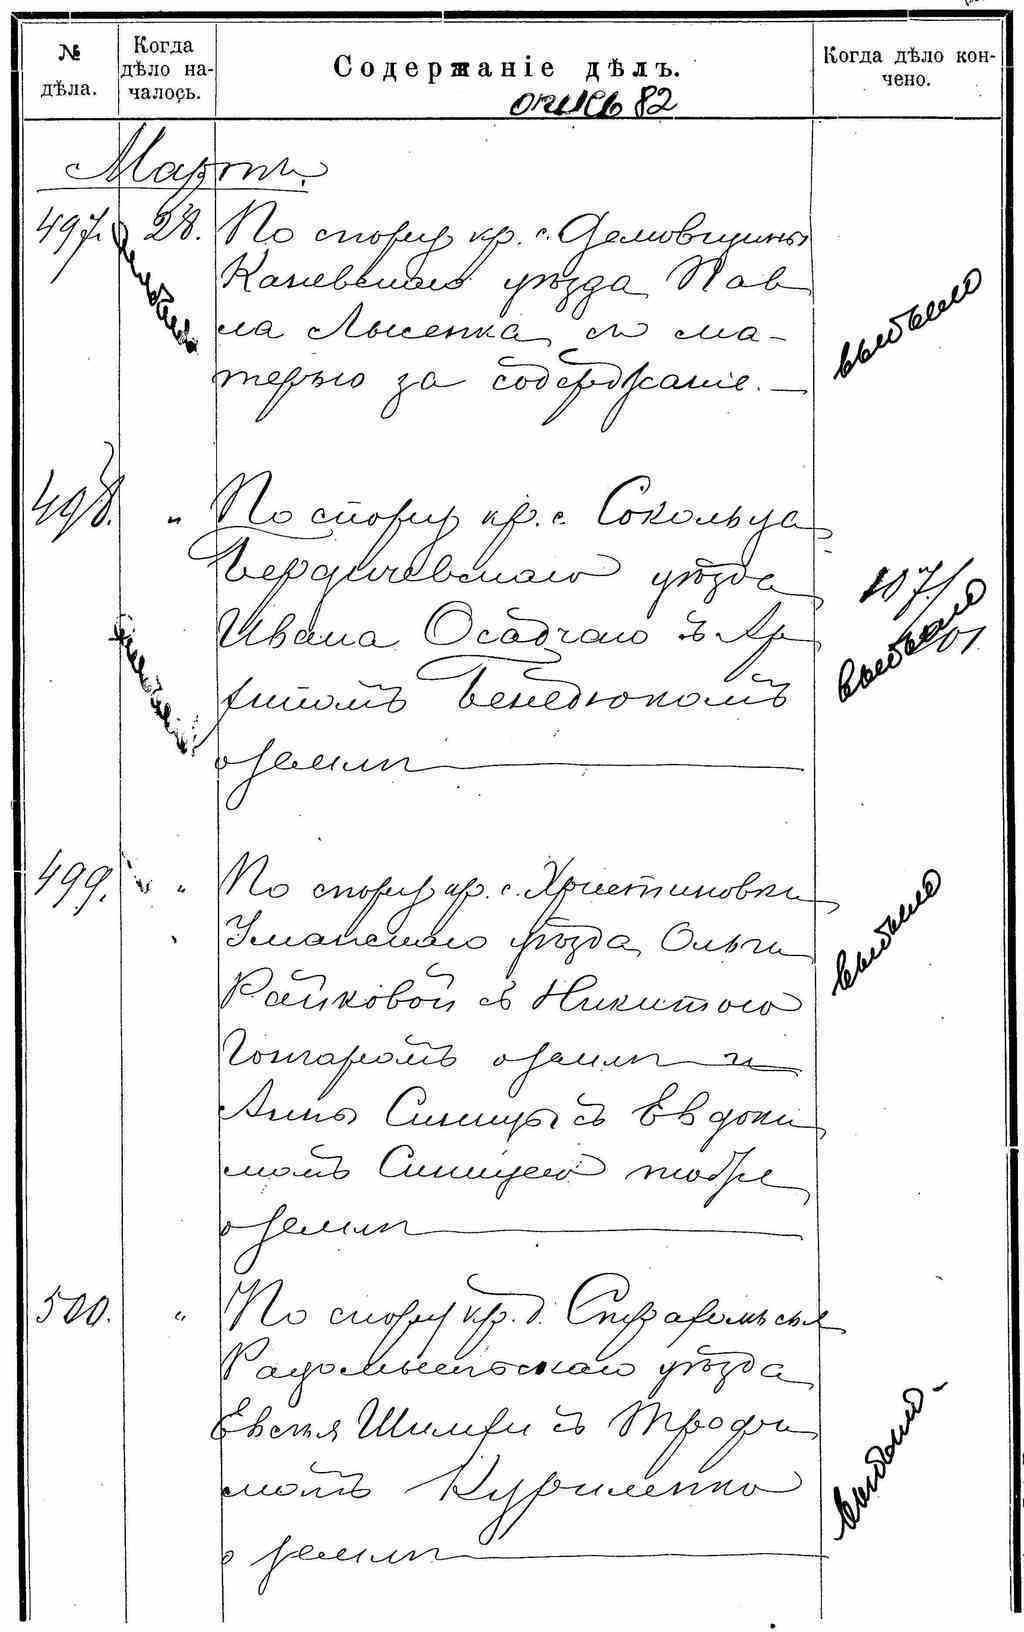 № дѣла.
Когда дѣло на-
чалось.
Содержаніе дѣлъ.
Когда дѣло кон-
чено.
опись 82
Мартъ.
497. 28. По спору кр. с. Демовщины
Каневскаго уѣзда Пав
ла Лысенка съ ма-
терью за содержаніе. —
выбыло
498. " По спору кр. с. Сокольца
Бердичевскаго уѣзда
107/01
Ивана Осадчаго съ Ар
выбыло
Бенедюкомъ
о землѣ
499. " По спору кр. с. Христиновки
Уманскаго уѣзда Ольги
выбыло
Райковой съ Никитою
Гончаромъ о землѣ и
Анны Синицы съ Евдоки
момъ Синицею тоже
о землѣ
500. " По спору кр. д.
Радомысльскаго уѣзда
Евсея съ Трофи
момъ Куриленко
выбыло
о землѣ